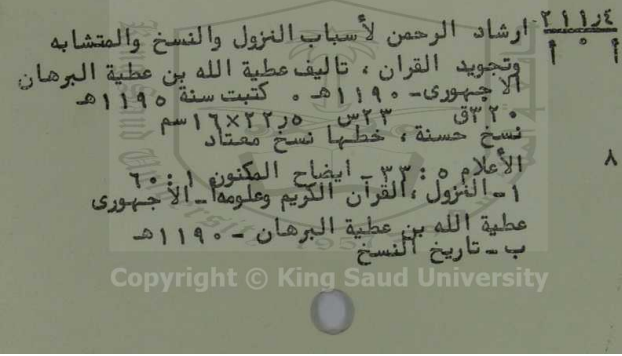 ٢١١ر٤ ارشاد الرحمن لأسباب النزول والنسخ والمتشابه
أ ٠ أ وتجويد القران ، تاليف عطية الله بن عطية البرهان
الاجهورى - ١١٩٠هـ ٠ كتبت سنة ١١٩٥هـ
٣٢٠ق ٢٣س ٢٢ر٥×١٦سم
نسخ حسنة ، خطها نسخ معتاد
٨
الأعلام ٥ : ٣٣ - ايضاح المكنون ١ : ٦٠
١ - النزول ، القرآن الكريم وعلومه أ - الاجهورى
عطية الله بن عطية البرهان - ١١٩٠هـ
ب - تاريخ النسخ
Copyright © King Saud University